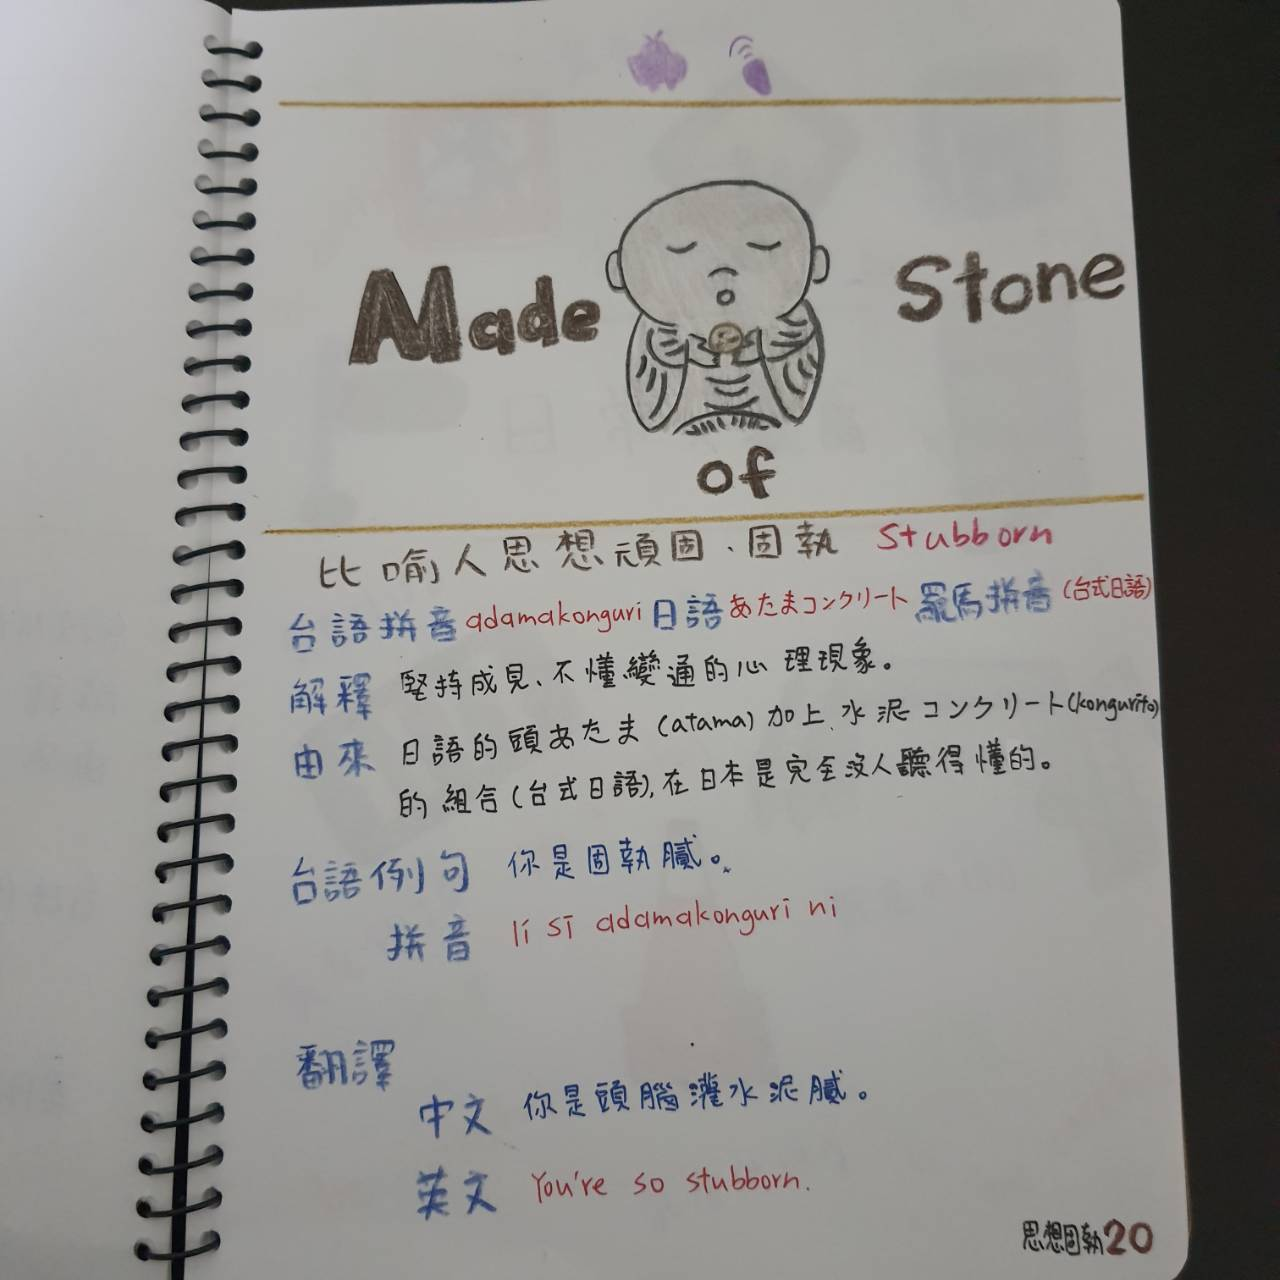 Made of Stone
比喻人思想頑固、固執 Stubborn
台語拼音 adamakonguri 日語 あたまコンクリート 羅馬拼音 (台式日語)
解釋 堅持成見、不懂變通的心理現象。
由來 日語的頭あたま (atama) 加上水泥コンクリート(kongurīto)
的組合(台式日語), 在日本是完全沒人聽得懂的。
台語例句 你是固執膩。
拼音 lí sī adamakonguri ni
翻譯
中文 你是頭腦灌水泥膩。
英文 You're so stubborn.
思想固執20